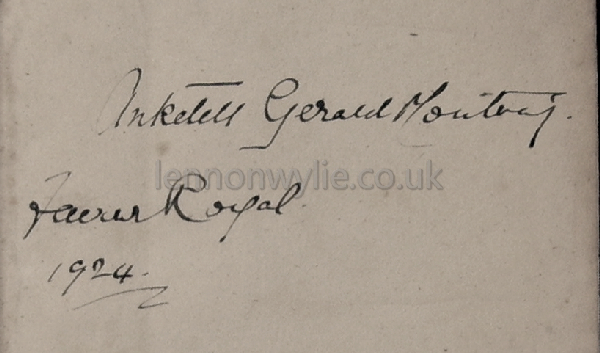 Anketell Gerald Moutray.
lennonwylie.co.uk
Favour Royal.
1924.